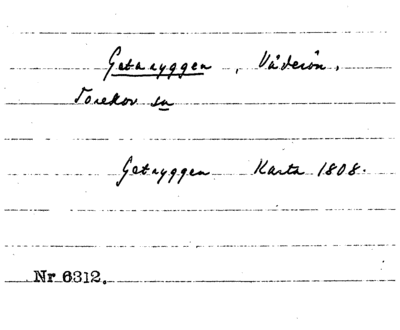 Getaryggen, Väderön.
Torekov sn
Getryggen Karta 1808.
Nr 6312.